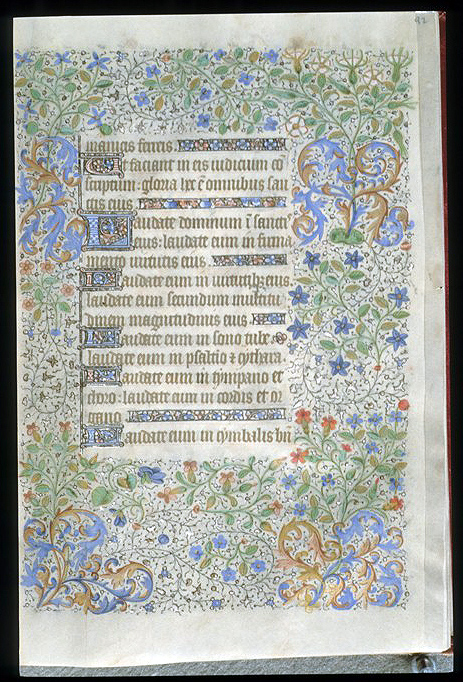 92
manicis ferreis
Et faciant in eis iudicium cō
scriptum: gloria hec ē omnibus san
ctis eius
Laudate dominum ī sanctꝭ
eius: laudate eum in firma
mento virtutis eius
Laudate eum in virtutibꝫ eius
laudate eum secundum multitu
dinem magnitudinis eius
Laudate eum in sono tube
laudate eum in psaltio ⁊ cythara
Laudate eum in tympano et
choro: laudate eum in cordis et or
gano
Laudate eum in cymbalis bn̄